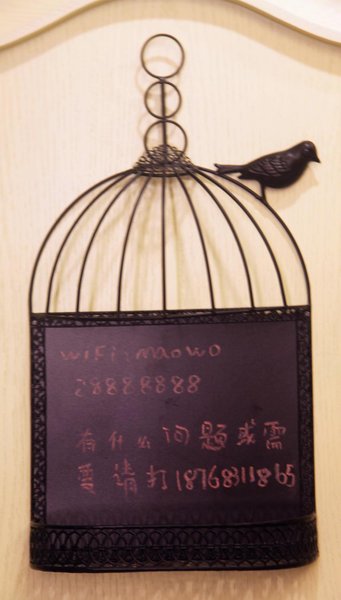 WiFi:maowo
28888888
有什么问题或需
要请打18768311865